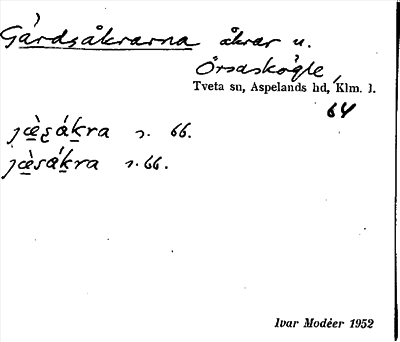 Gårdsåkrarna åkrar u.
Örsaskögle,
Tveta sn, Aspelands hd, Klm. l.
64
jæ̀ʂåḵra s. 66.
jæ̀såḵra s. 66.
Ivar Modéer 1952